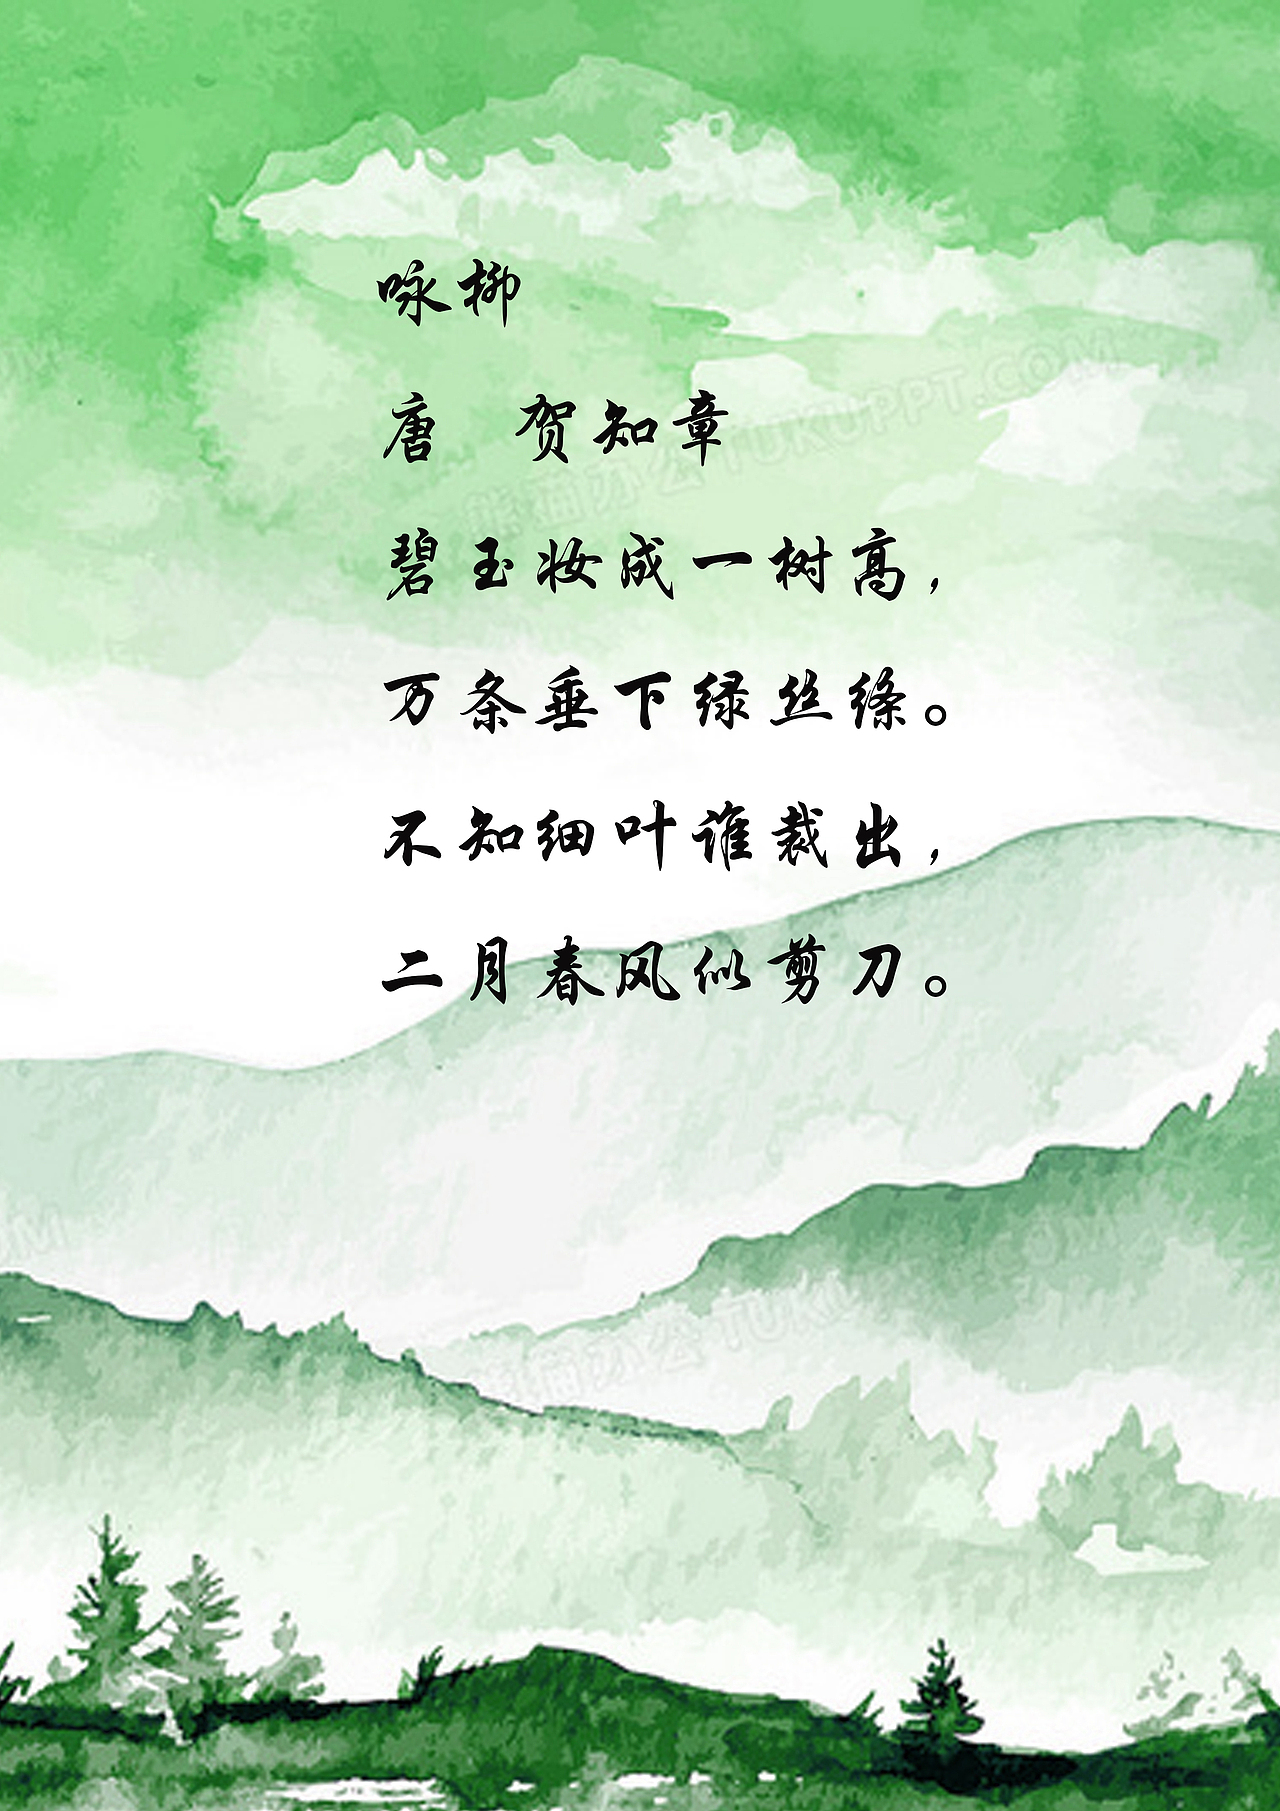 咏柳
唐 贺知章
碧玉妆成一树高，
万条垂下绿丝绦。
不知细叶谁裁出，
二月春风似剪刀。
熊猫办公 TUKUPPT.COM